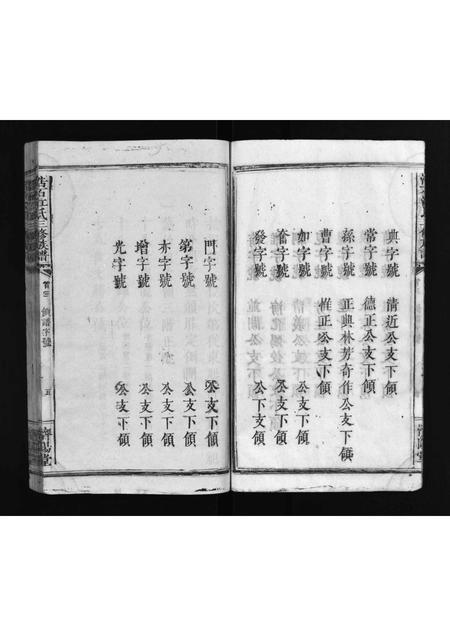 典字號 清近公支下領
常字號 德正公支下領
孫字號 正典林芳奇作公支下領
曹字號 惟正公支下領
如字號 公下支領
奮字號 公下支領
發字號 公下支領
門字號 公支下領
第字號 公支下領
亦字號 公支下領
增字號 公支下領
光字號 公支下領
江氏三修族譜
首三 領譜字號
五
濟陽堂